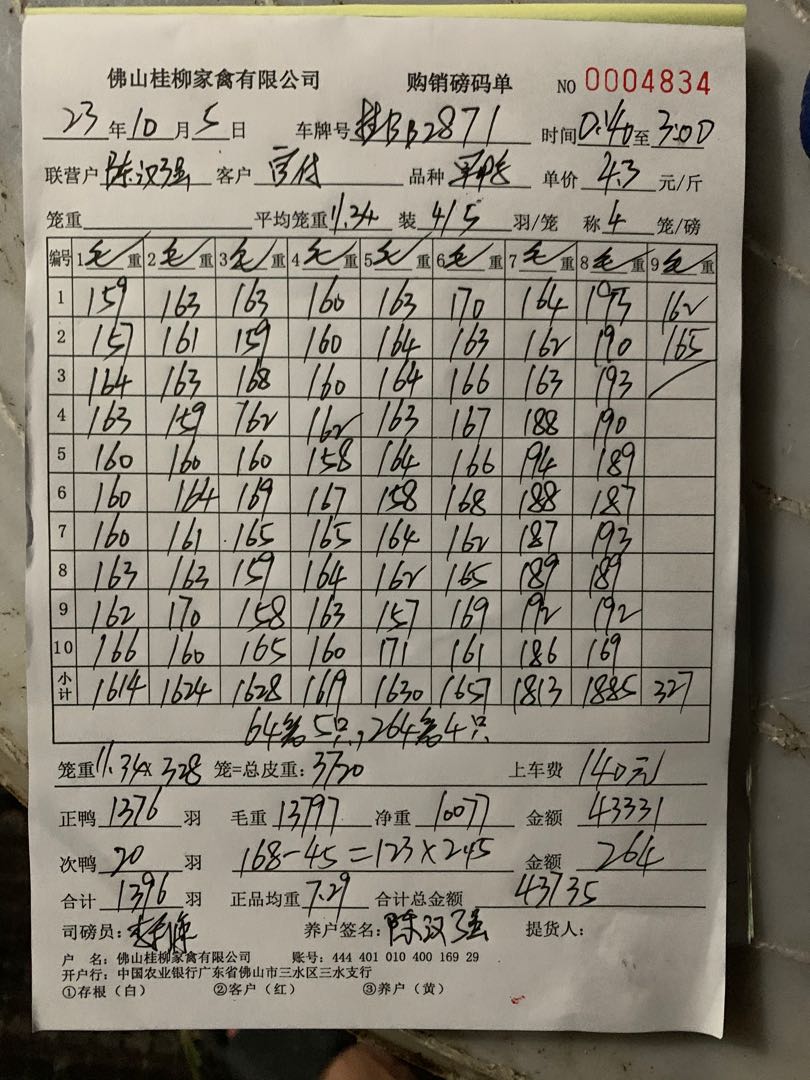 佛山桂柳家禽有限公司 购销磅码单 NO 0004834
23年10月5日 车牌号桂BB2871 时间0:40至3:00
联营户陈汉强 客户 品种 单价4.3元/斤
笼重 平均笼重11.34 装4/5羽/笼 称4笼/磅
编号 1毛重 2毛重 3毛重 4毛重 5毛重 6毛重 7毛重 8毛重 9毛重
1 159 163 163 160 163 170 164 195 162
2 157 161 159 160 164 163 162 190 165
3 164 163 168 160 164 166 163 193
4 163 159 162 162 163 167 188 190
5 160 160 160 158 164 166 194 189
6 160 164 169 167 158 168 188 187
7 160 161 165 165 164 162 187 193
8 163 163 159 164 162 165 189 189
9 162 170 158 163 157 169 192 192
10 166 160 165 160 171 161 186 169
小计 1614 1624 1628 1619 1630 1657 1813 1885 327
64笼5只,264笼4只
笼重11.34×328笼=总皮重:3720 上车费140元
正鸭1376羽 毛重13797 净重10077 金额43331
次鸭20羽 168-45=123×2.45 金额264
合计1396羽 正品均重7.29 合计总金额43735
司磅员: 养户签名:陈汉强 提货人:
户 名:佛山桂柳家禽有限公司 账号:444 401 010 400 169 29
开户行:中国农业银行广东省佛山市三水区三水支行
①存根(白) ②客户(红) ③养户(黄)